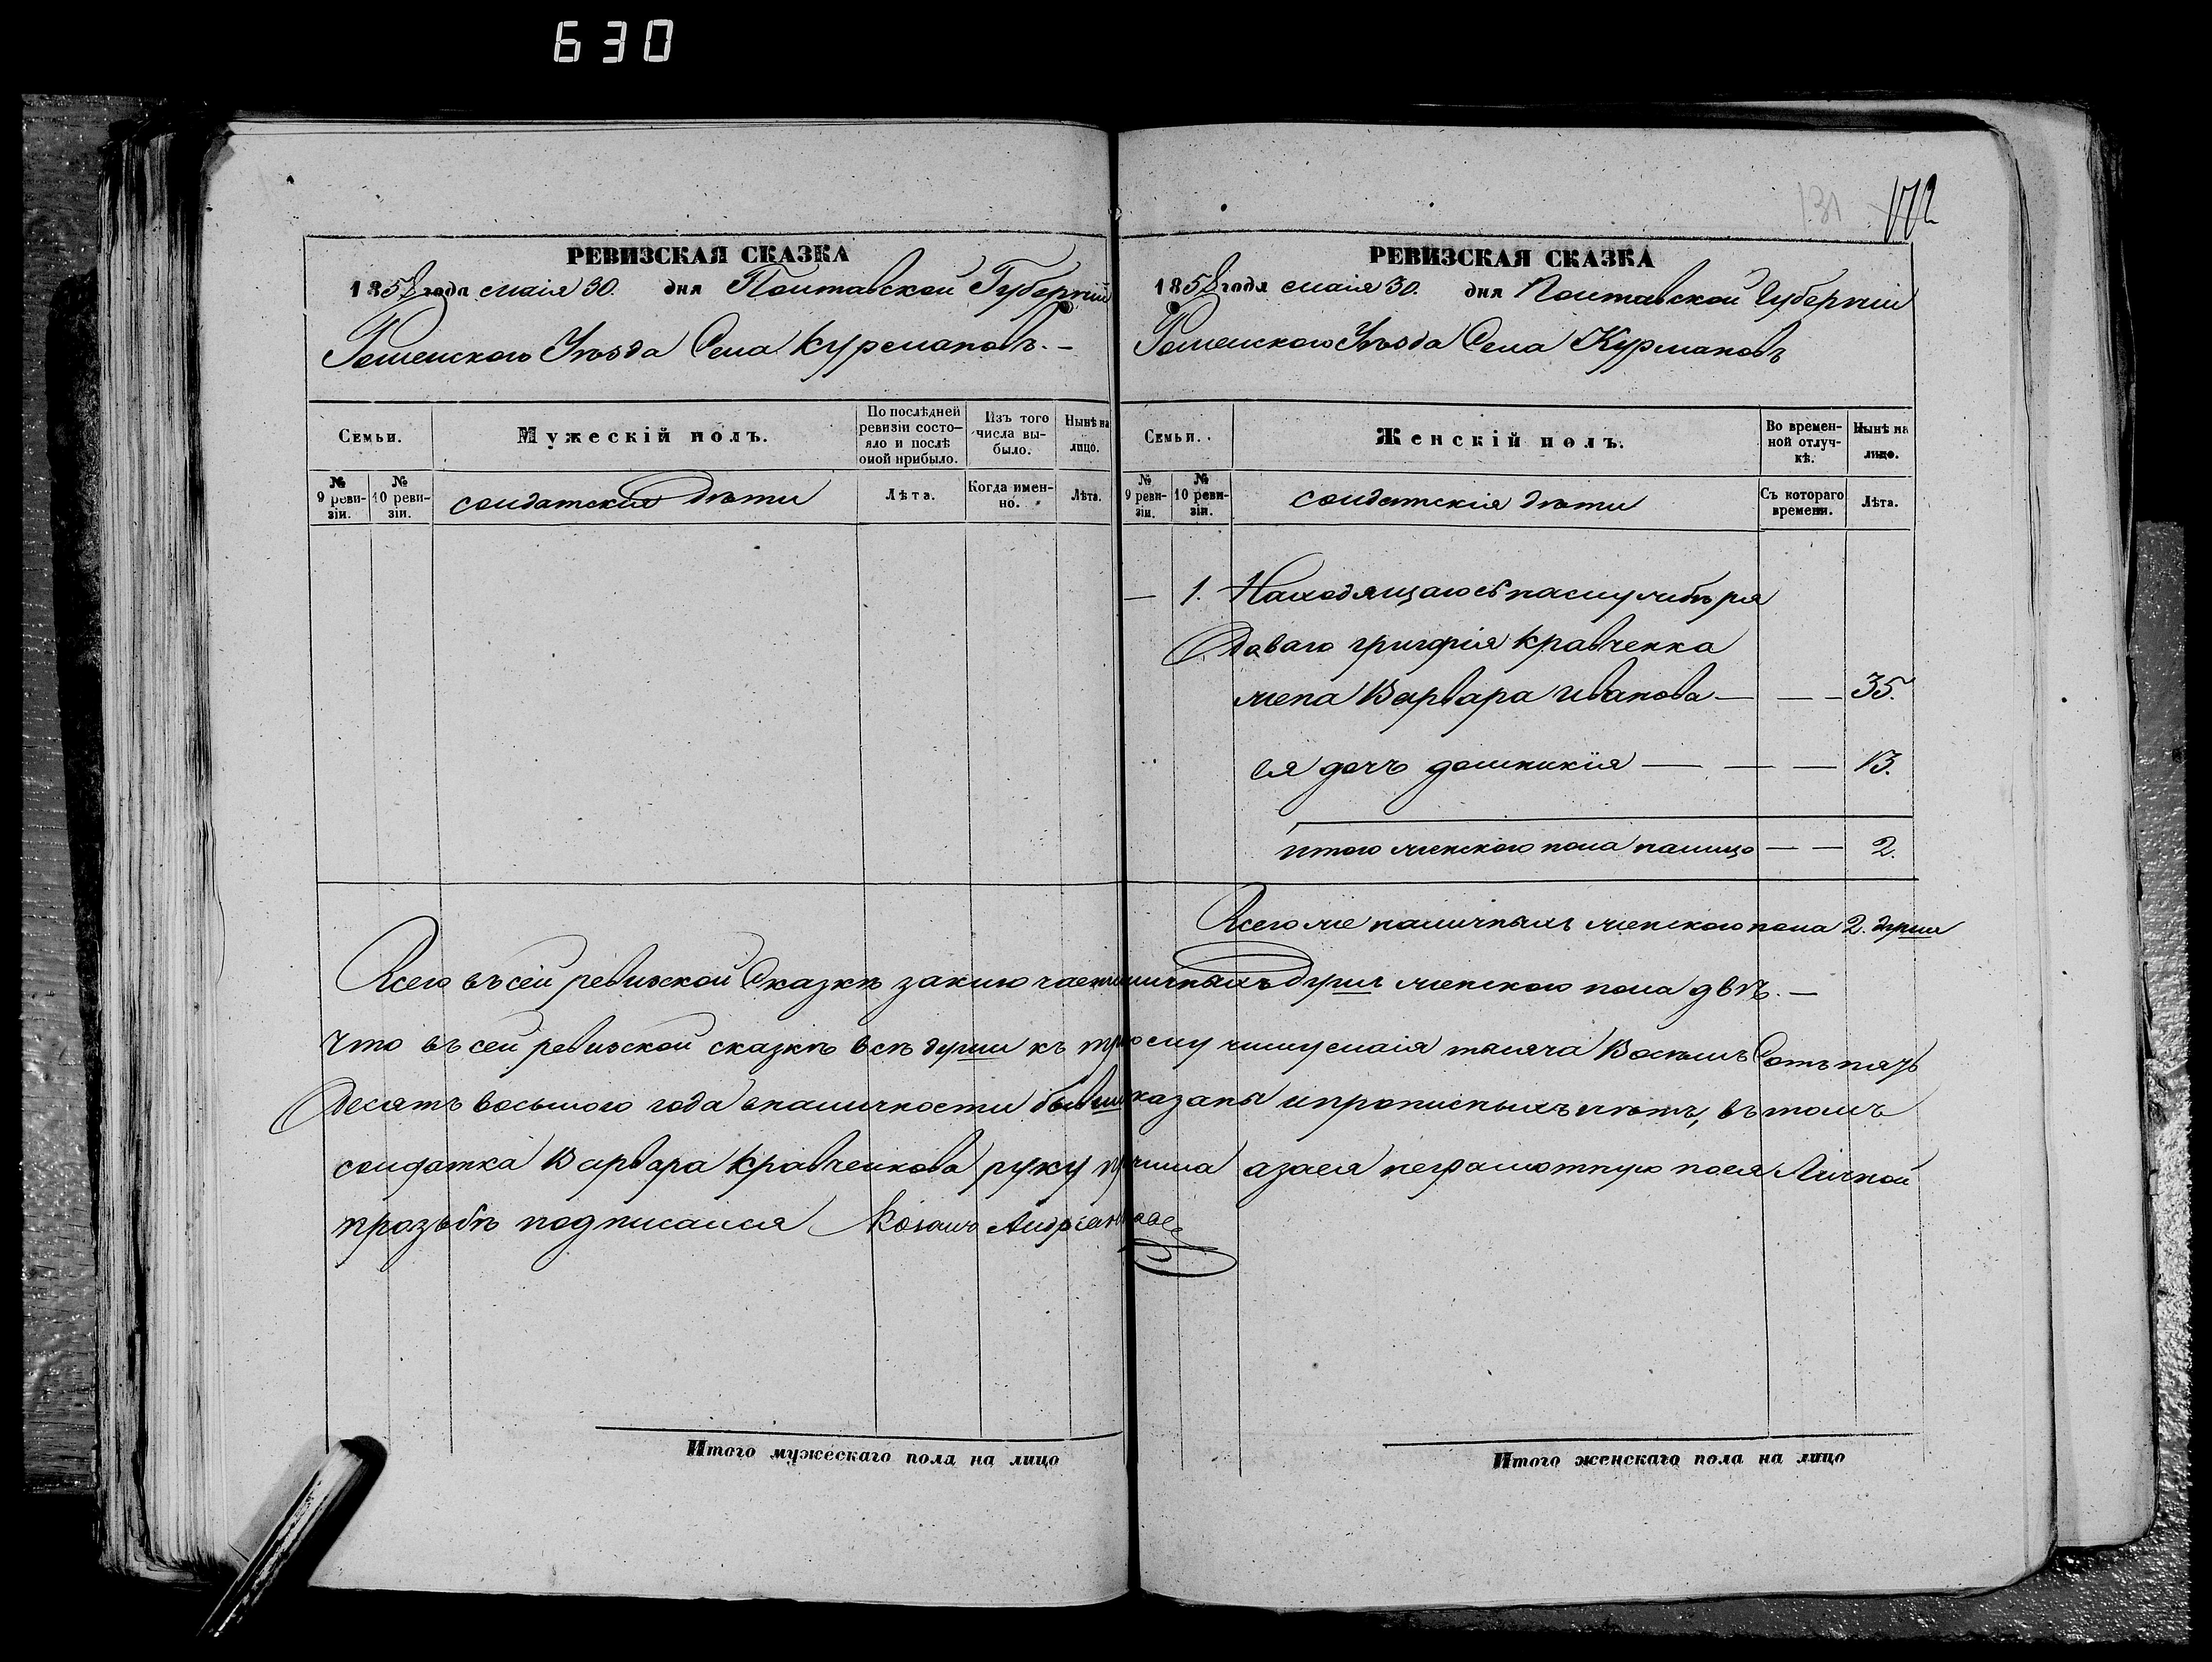 630
131 172
РЕВИЗСКАЯ СКАЗКА
1858 года маія 30. дня Полтавской Губерніи
Роменского Уѣзда Села Курмановъ. —
Семьи.
Мужескій полъ.
По послѣдней ревизіи состо-
яло и послѣ
оной прибыло.
Изъ того
числа вы-
было.
Нынѣ на
лицо.
№ 9 реви-
зіи.
№ 10 реви-
зіи.
солдатскія дѣти
Лѣта.
Когда имен-
но.
Лѣта.
Итого мужескаго пола на лицо
РЕВИЗСКАЯ СКАЗКА
1858 года маія 30. дня Полтавской Губерніи
Роменского Уѣзда Села Курмановъ
Семьи.
Женскій полъ.
Во времен-
ной отлуч-
кѣ.
Нынѣ на
лицо.
№ 9 реви-
зіи.
№ 10 реви-
зіи.
солдатскія дѣти
Съ котораго
времени.
Лѣта.
— 1. Находящагось наслужбѣ ря
доваго григорія кравченка
жена Варвара иванова — — — 35.
ея дочъ домникія — — — 13.
итого женского пола налицо — — 2.
Всего же наличныхъ женского пола 2. души
Всего въ сей ревизской Сказкѣ заключает наличныхъ душъ женского пола двѣ. —
Что въ сей ревизской сказкѣ всѣ души къ числу маія тысяча Восѣмъ Сотъ пять
Десятъ восьмого года вналичности показаны ипрописныхъ нѣтъ, въ томъ
солдатка Варвара кравченкова руку азаея неграмотную поея Личной
прозьбѣ подписался Козакъ
Итого женскаго пола на лицо